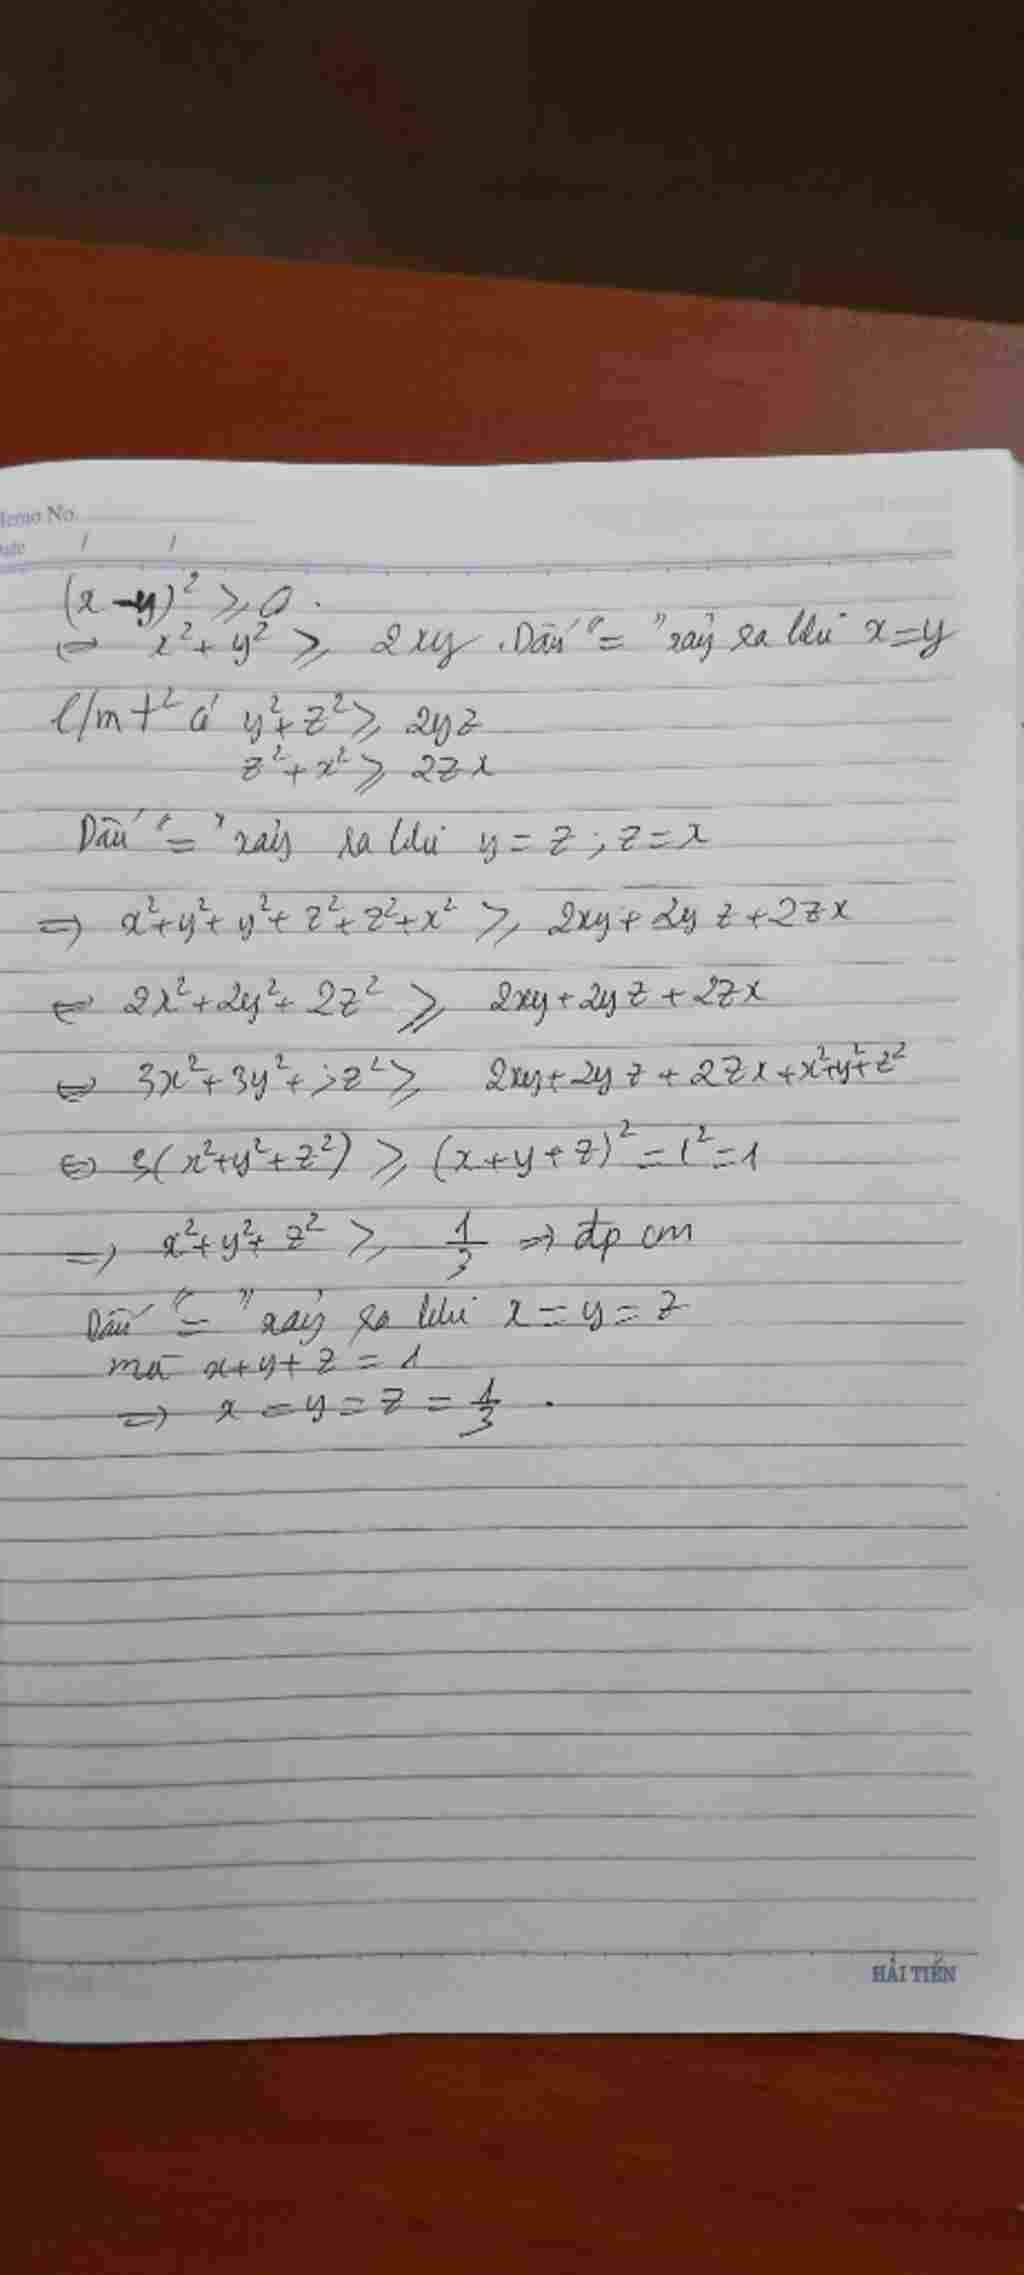 Memo No.
Date / /
(x-y)² ≥ 0.
⇔ x² + y² ≥ 2xy. Dấu "=" xảy ra khi x=y
C/m t² có y²+z² ≥ 2yz
z²+x² ≥ 2zx
Dấu "=" xảy ra khi y = z ; z = x
⇒ x²+y²+y²+z²+z²+x² ≥ 2xy+2yz+2zx
⇔ 2x²+2y²+2z² ≥ 2xy+2yz+2zx
⇔ 3x²+3y²+3z² ≥ 2xy+2yz+2zx+x²+y²+z²
⇔ 3(x²+y²+z²) ≥ (x+y+z)² = 1² = 1
⇒ x²+y²+z² ≥ 1/3 ⇒ đpcm
Dấu "=" xảy ra khi x = y = z
mà x+y+z = 1
⇒ x = y = z = 1/3.
HẢI TIẾN